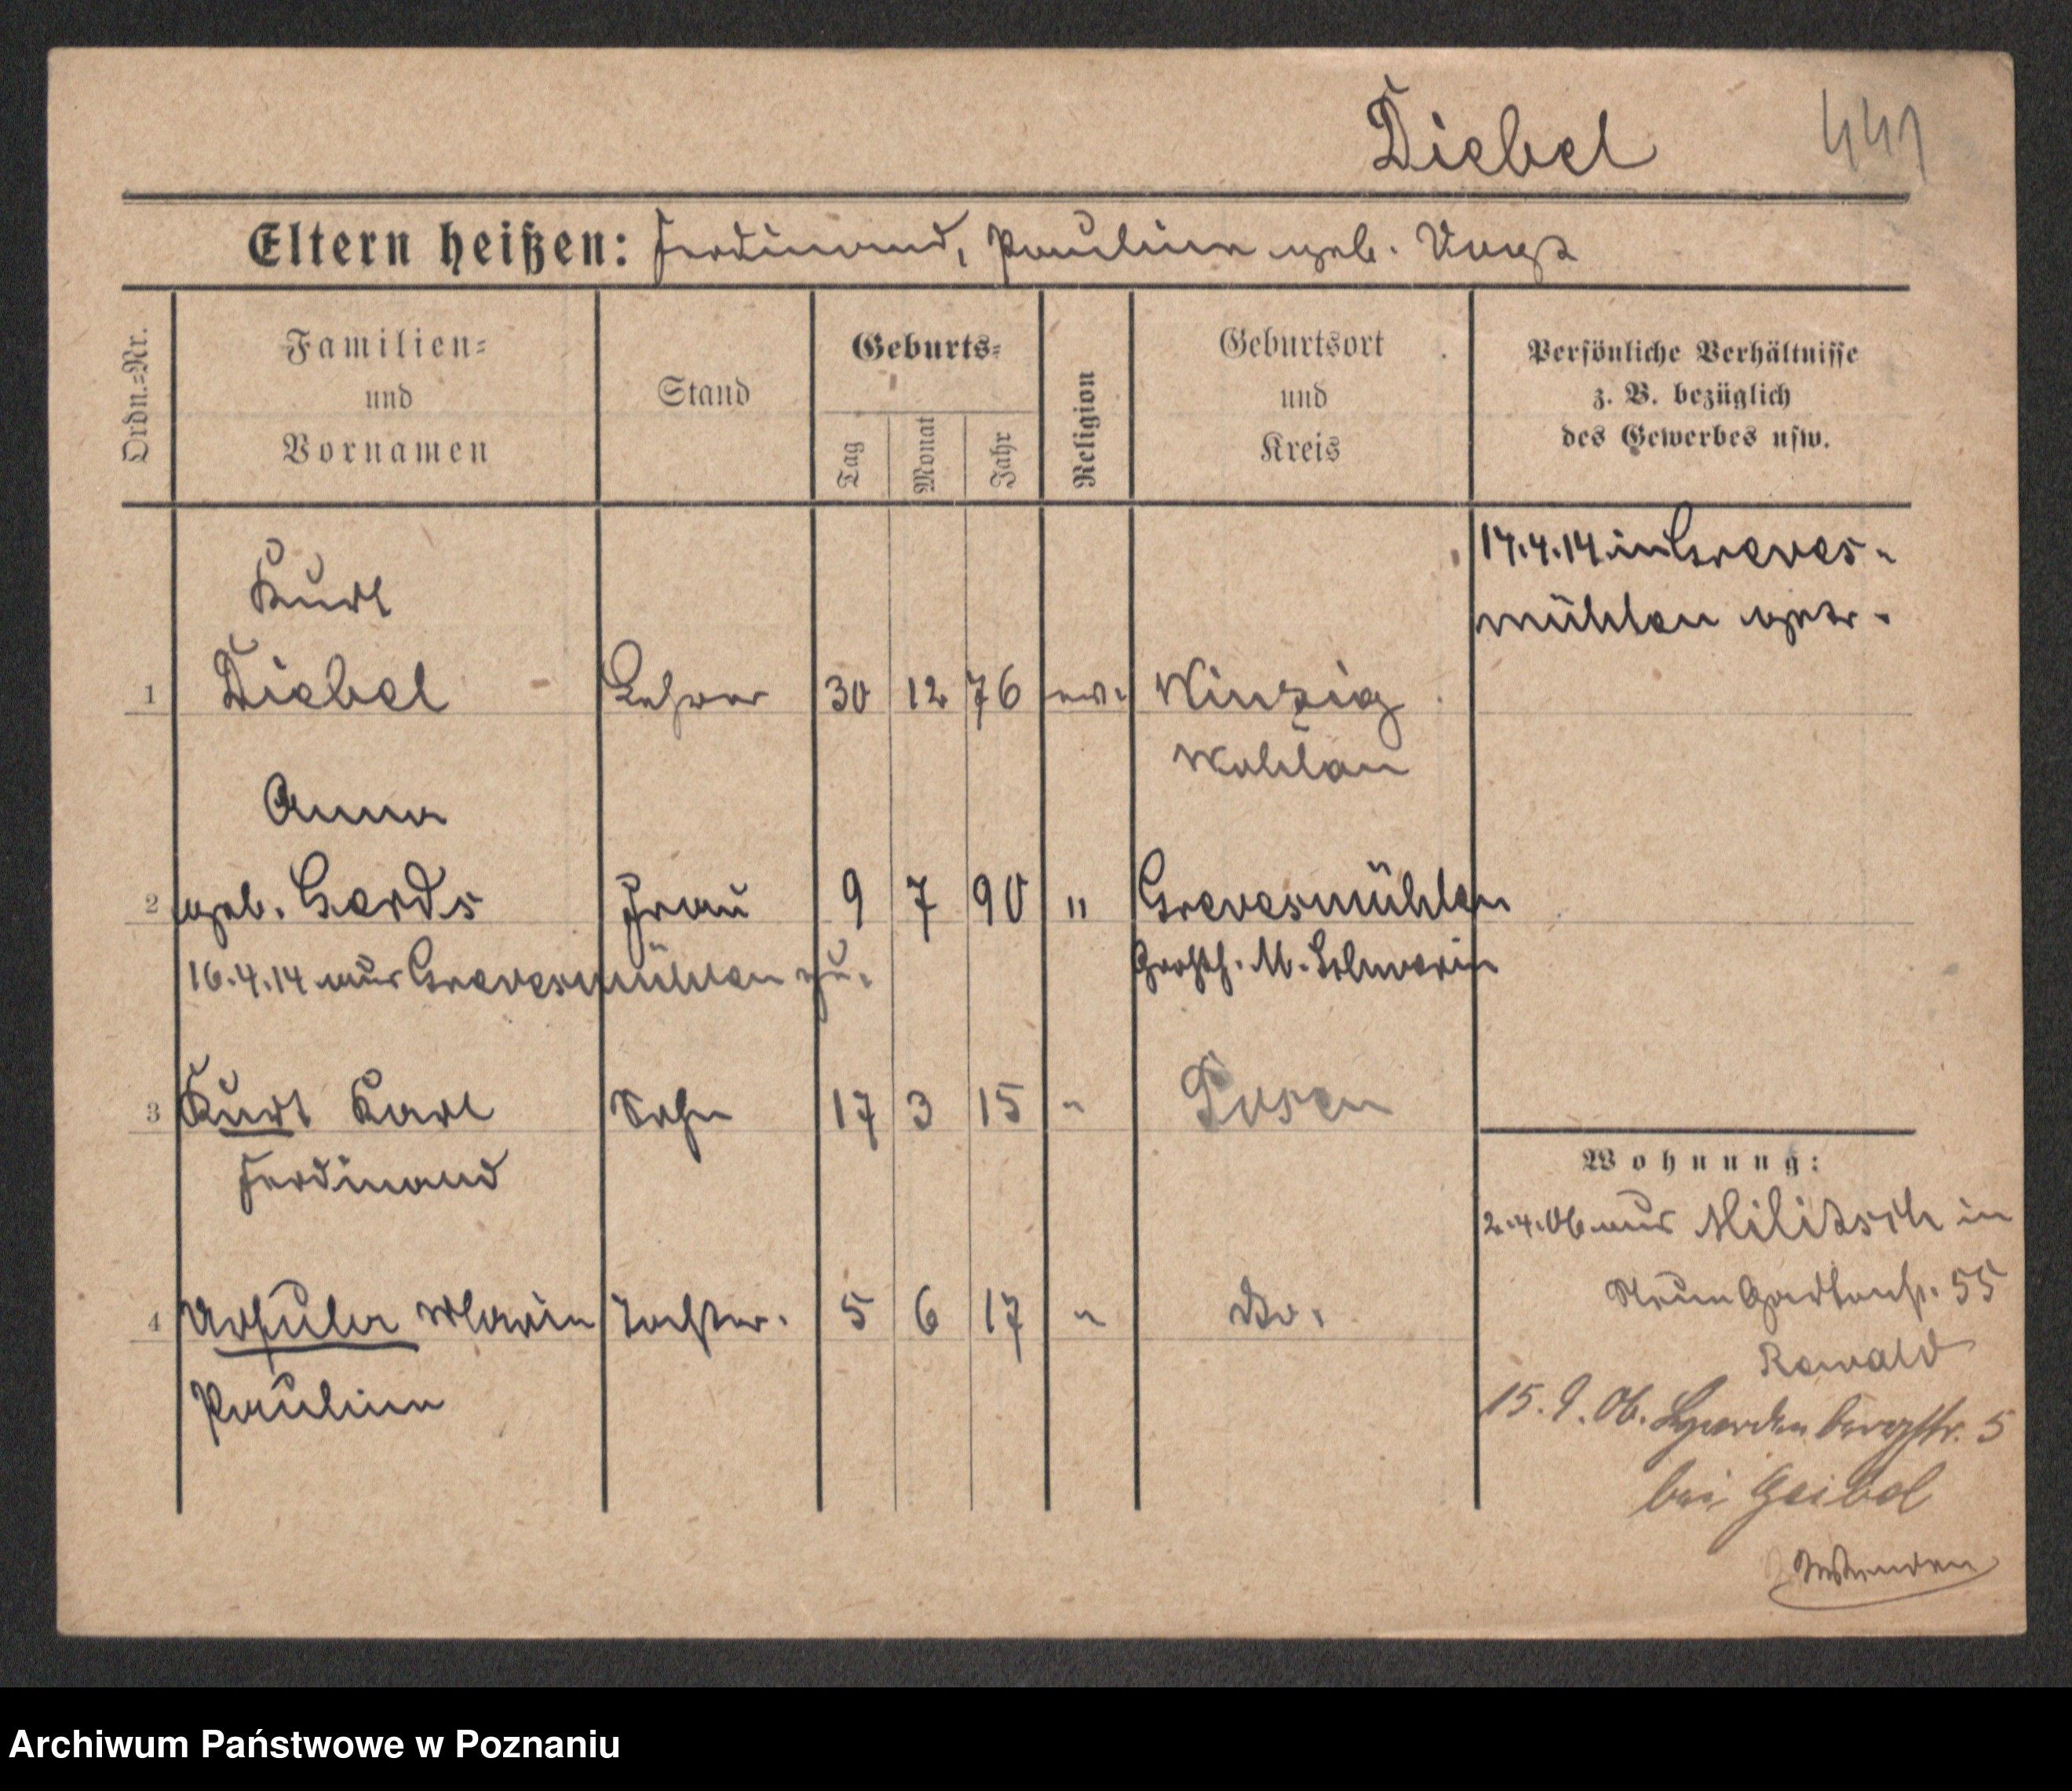 Diebel 441
Eltern heißen: Ferdinand, Pauline geb. Vogt
Ordn.=Nr.
Familien=
und
Vornamen
Stand
Geburts=
Tag
Monat
Jahr
Religion
Geburtsort
und
Kreis
Persönliche Verhältnisse
z. B. bezüglich
des Gewerbes usw.
17.4.14 in Greves-
mühlen getr.
Kurt
1 Diebel Lehrer 30 12 76 ev. Winzig
Wohlau
Anna
2 geb. Gerds Frau 9 7 90 " Grevesmühlen
Großh. M. Schwerin
16.4.14 aus Grevesmühlen zu.
3 Kurt Karl Sohn 17 3 15 " Posen
Ferdinand
4 Ursula Marie Tochter. 5 6 17 " Do.
Pauline
Wohnung:
2.4.06 aus Militsch in
Neue Gartenstr. 55
Rewald
15.9.06. Hardenbergstr. 5
bei Geibel